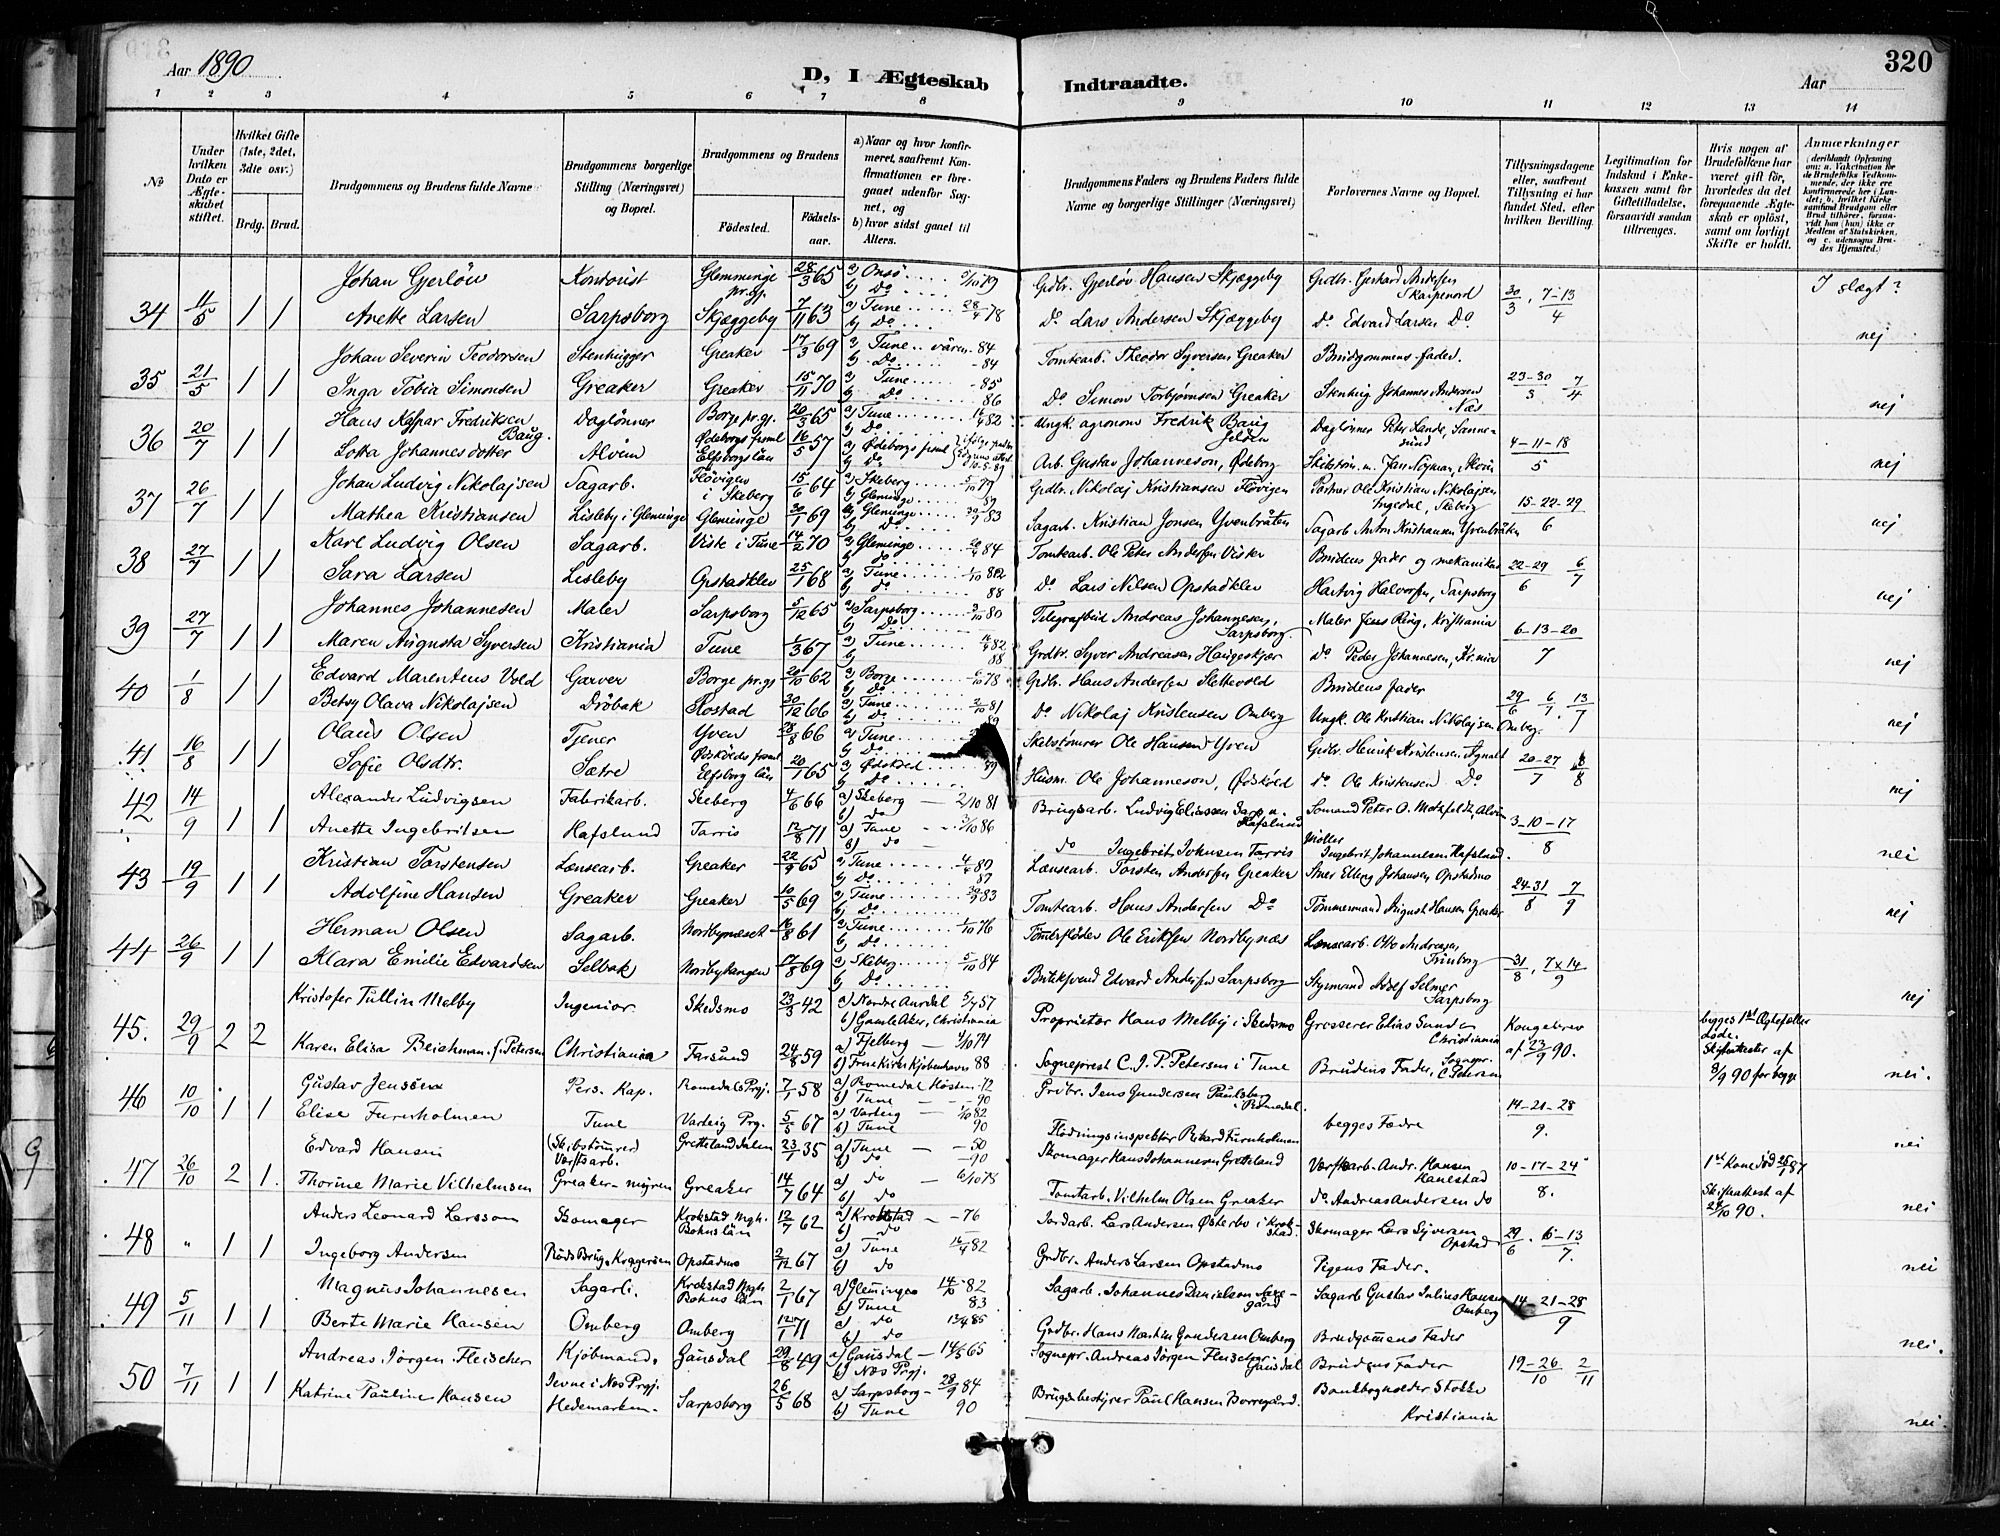 320
Aar 1890
D, I Ægteskab Indtraadte.
Aar
1 2 3 4 5 6 7 8 9 10 11 12 13 14
No
Under hvilken Dato er Ægteskabet stiftet.
Hvilket Gifte (1ste, 2det, 3die osv.)
Brdg. Brud.
Brudgommens og Brudens fulde Navne
Brudgommens borgerlige Stilling (Næringsvei) og Bopæl.
Brudgommens og Brudens
Fødested.
Fødselsaar.
a) Naar og hvor konfirmeret, saafremt Konfirmationen er foregaaet udenfor Sognet, og
b) hvor sidst gaaet til Alters.
Brudgommens Faders og Brudens Faders fulde Navne og borgerlige Stillinger (Næringsvei)
Forlovernes Navne og Bopæl.
Tillysningsdagene eller, saafremt Tillysning ei har fundet Sted, efter hvilken Bevilling.
Legitimation for Indskud i Enkekassen samt for Giftetilladelse, forsaavidt saadan tiltrænges.
Hvis nogen af Brudefolkene har været gift før, hvorledes da det foregaaende Ægteskab er opløst, samt om lovligt Skifte er holdt.
Anmærkninger
(deriblandt Oplysning om: a. Vakcination for de Brudefolks Vedkommende, der ikke ere konfirmerede her i Landet; b. hvilket Kirkesamfund Brudgom eller Brud tilhører, forsaavidt han (hun) ikke er Medlem af Statskirken, og c. udensogns Brudes Hjemsted.)
I slægt?
34 11/5 1 1 Johan Gjerløv Kontorist Glemminge pr.gj. 28/3 65 a) Onsø 79 b) Do Grdbr. Gjerløv Hansen Skjæggeby Grdbr. Gerhard Andersen Skarpenord 30/3, 7-13/4
Anette Larsen Sarpsborg Skjæggeby 7/11 63 a) Tune 78 b) Do Do Lars Andersen Skjæggeby Do Edvard Larsen Do nej
35 21/5 1 1 Johan Severin Teodorsen Stenhugger Greaker 17/3 69 a) Tune våren 84 b) Do 84 Tomtearb. Theodor Syversen Greaker Brudgommens fader. 23-30/3 7/4
Inga Tobia Simonsen Greaker Greaker 15/11 70 a) Tune 85 b) Do 86 Do Simon Torbjørnsen Greaker Stenhug Johannes Andersen Næs nej
36 20/7 1 1 Hans Kaspar Fredriksen Baug. Dagløner Borge pr.gj. 20/3 65 a) Tune 82 b) Do Ungk. agronom Fredrik Baug Dagløner Peter Lande, Sannesund 4-11-18/5
Lotta Johannesdotter Alvim Ødeborgs Elfsborgslän 16/5 57 a) Ødeborgs b) Do Arb. Gustav Johanneson, Ødeborg nej
37 26/7 1 1 Johan Ludvig Nikolajsen Sagarb. Fløvigen i Skeberg 15/6 64 a) Skeberg 79 b) Gleminge 89 Grdbr. Nikolaj Kristiansen Fløvigen Partner Ole Kristian Nikolajsen Ingedal, Skeberg 15-22-29/6
Mathea Kristiansen Lisleby i Gleminge Gleminge 30/1 69 a) Gleminge 83 b) Do Sagarb. Kristian Jonsen Yvenbråten Sagarb Anton Kristiansen Yvenbråten nej
38 27/7 1 1 Karl Ludvig Olsen Sagarb. Viste i Tune 14/2 70 a) Gleminge 84 b) do Tomtearb. Ole Peter Andersen Vister Brudens fader og mekaniker 22-29/6 6/7
Sara Larsen Lisleby Opstadklev 25/1 68 a) Tune 82 b) do 88 Do Lars Nilsen Opstadklev Hartvig Halvorsen, Sarpsborg nej
39 27/7 1 1 Johannes Johannesen Maler Sarpsborg 5/12 65 a) Sarpsborg 80 b) Do Telegrafbud Andreas Johannesen, Sarpsborg. Maler Jens Ring, Kristiania 6-13-20/7
Maren Augusta Syversen Kristiania Tune 1/3 67 a) Tune 82 b) 88 Grdbr. Syver Andreasen Haugeskjær Do Peder Johannesen, Kr.nia nej
40 1/8 1 1 Edvard Marentius Vold Garver Borge pr.gj 20/10 62 a) Borge 78 b) Do Grdbr. Hans Andersen Slettevold Brudens fader 29/6 6/7 13/7
Betsy Olava Nikolajsen Drøbak Rostad 30/12 66 a) Tune 81 b) Do 89 Do Nikolaj Kristensen Omberg Ungk. Ole Kristian Nikolajsen Omberg nej
41 16/8 1 1 Olaus Olsen Tjener Yven 28/8 66 a) Tune b) Do Skibstømrer Ole Hansen Yven Grdbr. Henrik Kristensen Agnalt 20-27/7 8/8
Sofie Olsdtr. Sætre Elfsborg län 20/1 65 a) Ødskøld 89 b) Do Husm. Ole Johanneson, Ødskøld do Ole Kristensen Do nej
42 14/9 1 1 Alexander Ludvigsen Fabrikarb. Skeberg 4/6 66 a) Skeberg 2/10 81 b) do Brugsarb. Ludvig Eliassen Sarp u. Hafslund Sømand Peter A. Motzfeldt, Alvim 3-10-17/8
Anette Ingebritsen Hafslund Tarris 12/8 71 a) Tune 3/10 86 b) do do Ingebrit Johnsen Tarris Møller Ingebrit Johannesen Hafslund. nei
43 19/9 1 1 Kristian Torstensen Lænsearb. Greaker 22/9 65 a) Tune 80 b) Do 87 Lænsearb. Torsten Andersen Greaker Elberg Johansen Opstadmo 24-31/8 7/9
Adolfine Hansen Greaker Greaker 10/5 69 a) Tune 83 b) Do Tomtearb. Hans Andersen Do Tømmermand August Hansen Greaker nej
44 26/9 1 1 Herman Olsen Sagarb. Nordbynæset 16/8 61 a) Tune 1/10 76 b) Do Tømmerfløder Ole Eriksen Nordbynæs Lænsearb. Otto Andreasen Trinborg 31/8, 7x14/9
Klara Emilie Edvardsen Selbak Nordbyhangen 17/8 69 a) Skeberg 5/10 84 b) Do Edvard Andersen Sarpsborg Styrmand Adolf Selmer Sarpsborg nej
45. 29/9 2 2 Kristofer Tullin Melby Ingeniør Skedsmo 23/3 42 a) Nordre Aurdal 5/7 57 b) Gamle Aker, Christiania Proprietær Hans Melby i Skedsmo Grosserer Elias Sunde Christiania Kongebrev af 23/9 90. begges 1st Ægtefæller døde. Skifteattester af 8/9 90 for begge
Karen Elisa Beichman f. Petersen Christiania Farsund 24/8 59 a) Fjelberg 4/10 74 b) Frue Kirke Kjøbenhavn 88 Sogneprest C. J. P. Petersen i Tune Brudens Fader, Sognepr. C Petersen nei.
46 10/10 1 1 Gustav Jenssen Pers. Kap. Romedals Prgj. 7/1 58 a) Romedal Høsten 72 b) Tune 90 Grdbr. Jens Gundersen Paulsberg i Romedal. begges Fædre 14-21-28/9.
Elise Furuholmen Tune Varteig Prg. 5/5 67 a) Varteig 1/10 82 b) Tune 90 Flødningsinspektør Rikard Furuholmen nei
47 26/10 2 1. Edvard Hansen (Skibstømrer) Værftsarb. Gretteland dalen 23/1 35 a) Tune 50 b) do 90 Skomager Hans Johannesen Gretteland Værftarb. Andr. Hansen Hanestad 10-17-24/8. 1st Kone død 25/1 87 Skifteattest af 24/10 90.
Thorine Marie Vilhelmsen Greaker-myren Greaker 14/7 64 a) do 6/10 78 b) do Tomtarb. Vilhelm Olsen Greaker do. Andreas Andersen do nei
48 " 1 1 Anders Leonard Larsson Skomager Krokstad Mgh. Bohuslän 12/7 62 a) Krokstad 76 b) do Jordarb. Lars Andersen Østerbo i Krokstad. Skomager Lars Syversen Opstad 29/6. 6-13/7.
Ingeborg Andersen Røds Brug, Kraggerøen Opstadmo 2/12 67 a) Tune 16/4 82 b) do Grdbr. Anders Larsen Opstadmo Pigens Fader. nei
49 5/11 1 1 Magnus Johannesen Sagarb. Krokstad Mgh Bohus län 2/1 67 a) Glemminge 14/10 82 b) Tune 83 Sagarb. Johannes Danielsen Sagarb Gustav Julius Hansen Omberg 14-21-28/9
Berte Marie Hansen Omberg Omberg 12/1 71 a) do 85 b) do Grdbr. Hans Martin Gundersen Omberg Brudgommens Fader nei.
50 7/11 1 1 Andreas Jørgen Fleischer Kjøbmand. Gausdal 29/8 49 a) Gausdal 14/5 65 b) Næs Prgj. Sognepr. Andreas Jørgen Fleischer Gausdal Brudens Fader 19-26/10 2/11
Katrine Pauline Hansen Jevne i Næs Prgj. Hedemarken. Sarpsborg 26/5 68 a) Sarpsborg 28/9 84 b) Tune 90 Brugsbestyrer Paul Hansen Borregård. Bankbogholder Stokke Kristiania nei.